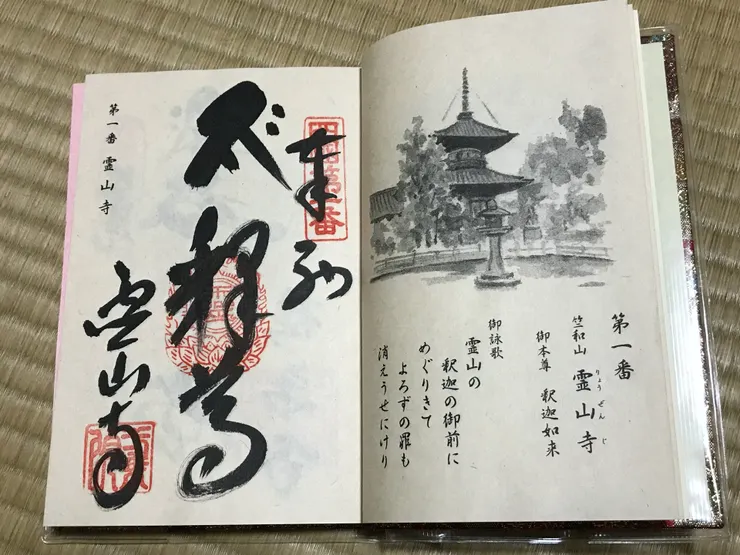 第一番
竺和山 霊山寺
りょうぜんじ
御本尊 釈迦如来
御詠歌
霊山の
釈迦の御前に
めぐりきて
よろずの罪も
消えうせにけり
四国第一番
奉納
釋尊
霊山寺
第一番 霊山寺